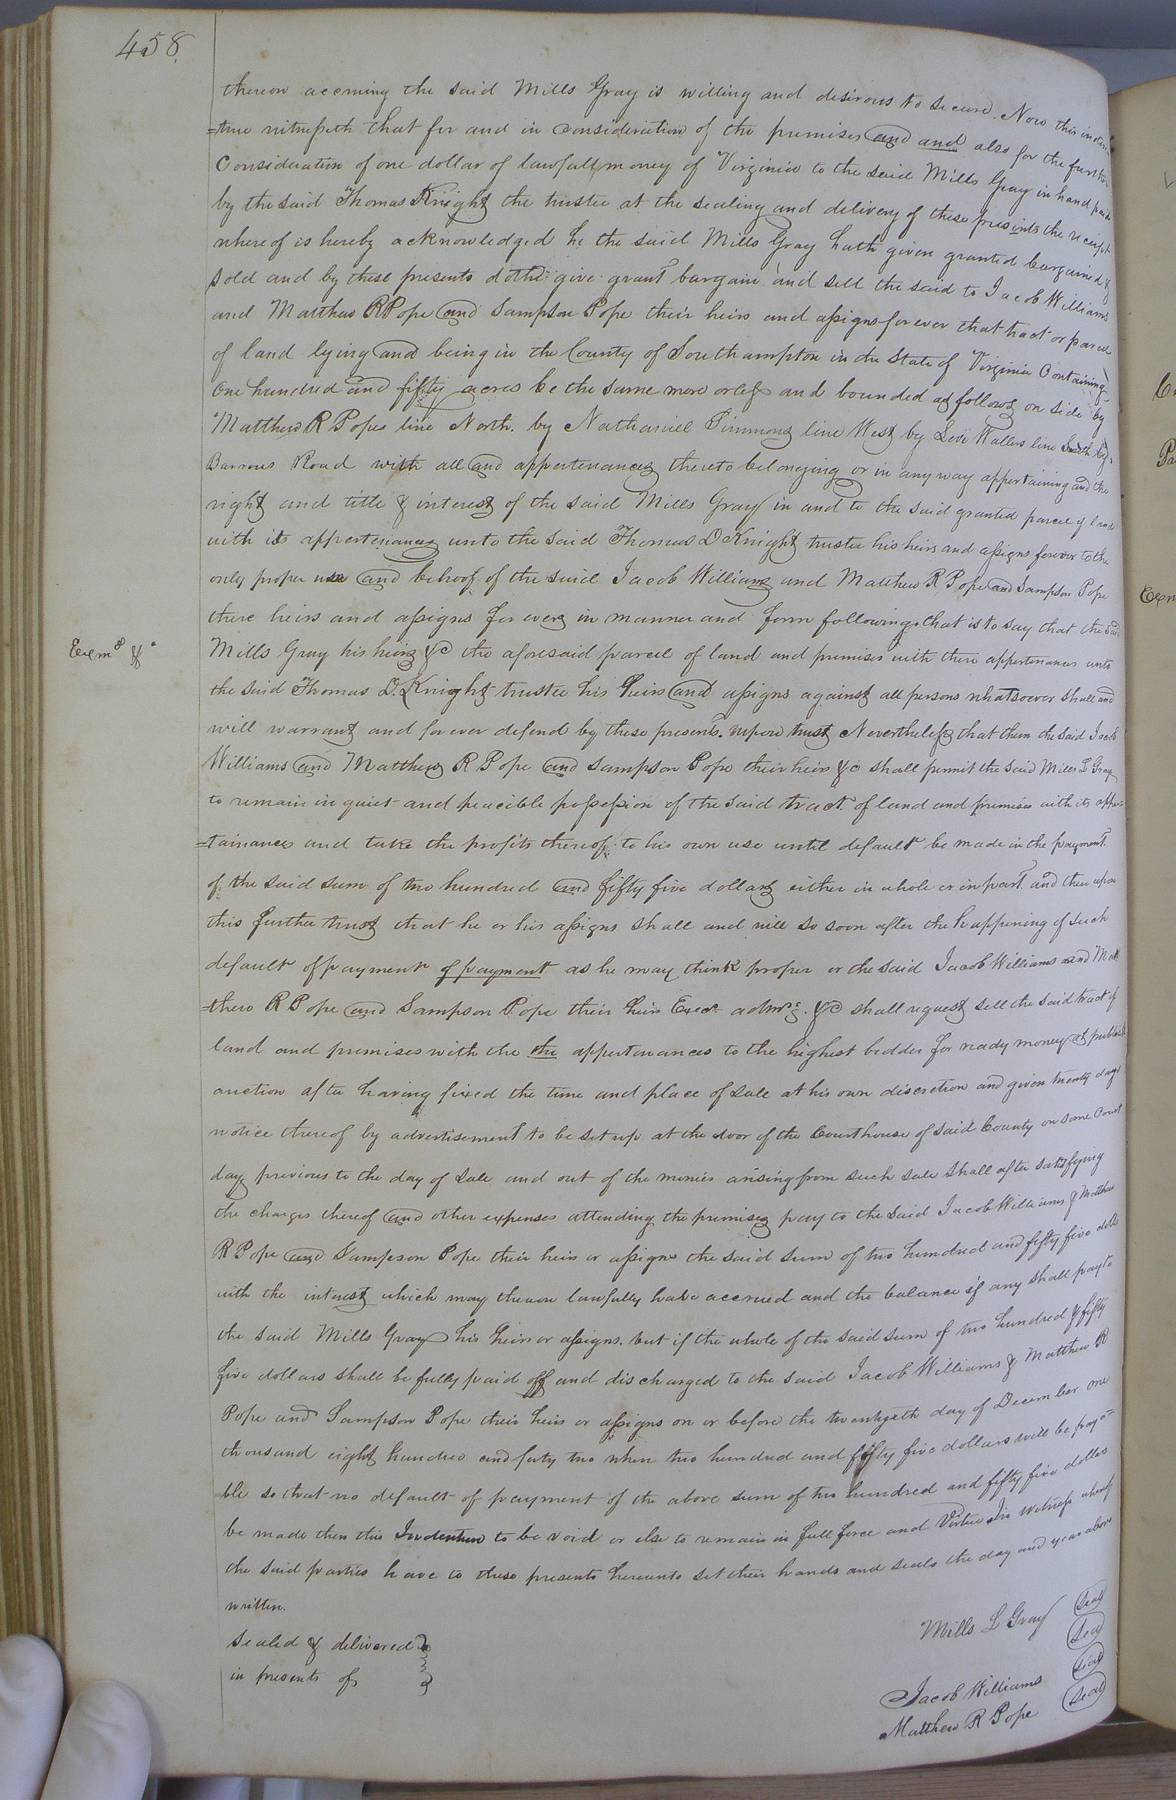 458.
thereon accruing the said Mills Gray is willing and desirous to secure. Now this inden
=ture witnesseth that for and in consideration of the premises and and also for the further
Consideration of one dollar of lawfull money of Virginia to the said Mills Gray in hand paid
by the said Thomas Knight the trustee at the sealing and delivery of these presents the receipt
whereof is hereby acknowledged he the said Mills Gray hath given granted bargained &
sold and by these presents doth give grant bargain and sell the said to Jacob Williams
and Matthew R Pope and Sampson Pope their heirs and assigns forever that tract or parcel
of land lying and being in the County of Southampton in the State of Virginia Containing
One hundred and fifty acres be the same more or less and bounded as follows on side by
Matthew R Popes line North. by Nathaniel Simmons line West by Levi Wallers line South by
Barrows Road with all and appertenances thereto belonging or in any way appertaining and the
right and title & interest of the said Mills Gray in and to the said granted parcel of land
with its appertenances unto the said Thomas D Knight trustee his heirs and assigns forever to the
only proper use and behoof of the said Jacob Williams and Matthew R Pope and Sampson Pope
there heirs and assigns for ever in manner and form following that is to say that the said
Exmd &
Mills Gray his heirs &c the aforesaid parcel of land and premises with there appertenances unto
the said Thomas D. Knight trustee his heirs and assigns against all persons whatsoever shall and
will warrant and forever defend by these presents. upon trust Nevertheless that them the said Jacob
Williams and Matthew R Pope and Sampson Pope their heirs &c shall permit the said Mills L Gray
to remain in quiet and peacible possession of the said tract of land and premises with its apper
=tainances and take the profits thereof to his own use until default be made in the payment
of the said sum of two hundred and fifty five dollars either in whole or in part and then upon
this further trust that he or his assigns shall and will so soon after the happening of such
default of payment of payment as he may think proper or the said Jacob Williams and Mat
=thew R Pope and Sampson Pope their heirs Exers admrs. &c shall request sell the said tract of
land and premises with the the appertenances to the highest bedder for ready money at publick
auction after having fixed the time and place of sale at his own discretion and given twenty days
notice thereof by advertisement to be set up at the door of the Courthouse of said County on some Court
day previous to the day of sale and out of the monies arising from such sale shall after satisfying
the charges thereof and other expenses attending the premises pay to the said Jacob Williams & Matthew
R Pope and Sampson Pope their heirs or assigns the said sum of two hundred and fifty five dolls
with the interest which may thereon lawfully have accrued and the balance if any shall pay to
the said Mills Gray his heirs or assigns. but if the whole of the said sum of two hundred & fifty
five dollars shall be fully paid off and discharged to the said Jacob Williams & Matthew R
Pope and Sampson Pope their heirs or assigns on or before the twentyeth day of December one
thousand eight hundred and forty two when two hundred and fifty five dollars will be paya
ble so that no default of payment of the above sum of two hundred and fifty five dollars
be made then this Indenture to be void or else to remain in full force and Virtue In witness whereof
the said parties have to these presents hereunto set their hands and seals the day and year above
written.
Mills L Gray Seal
Sealed & delivered Seal
in presents of Seal
Jacob Williams Seal
Matthew R Pope